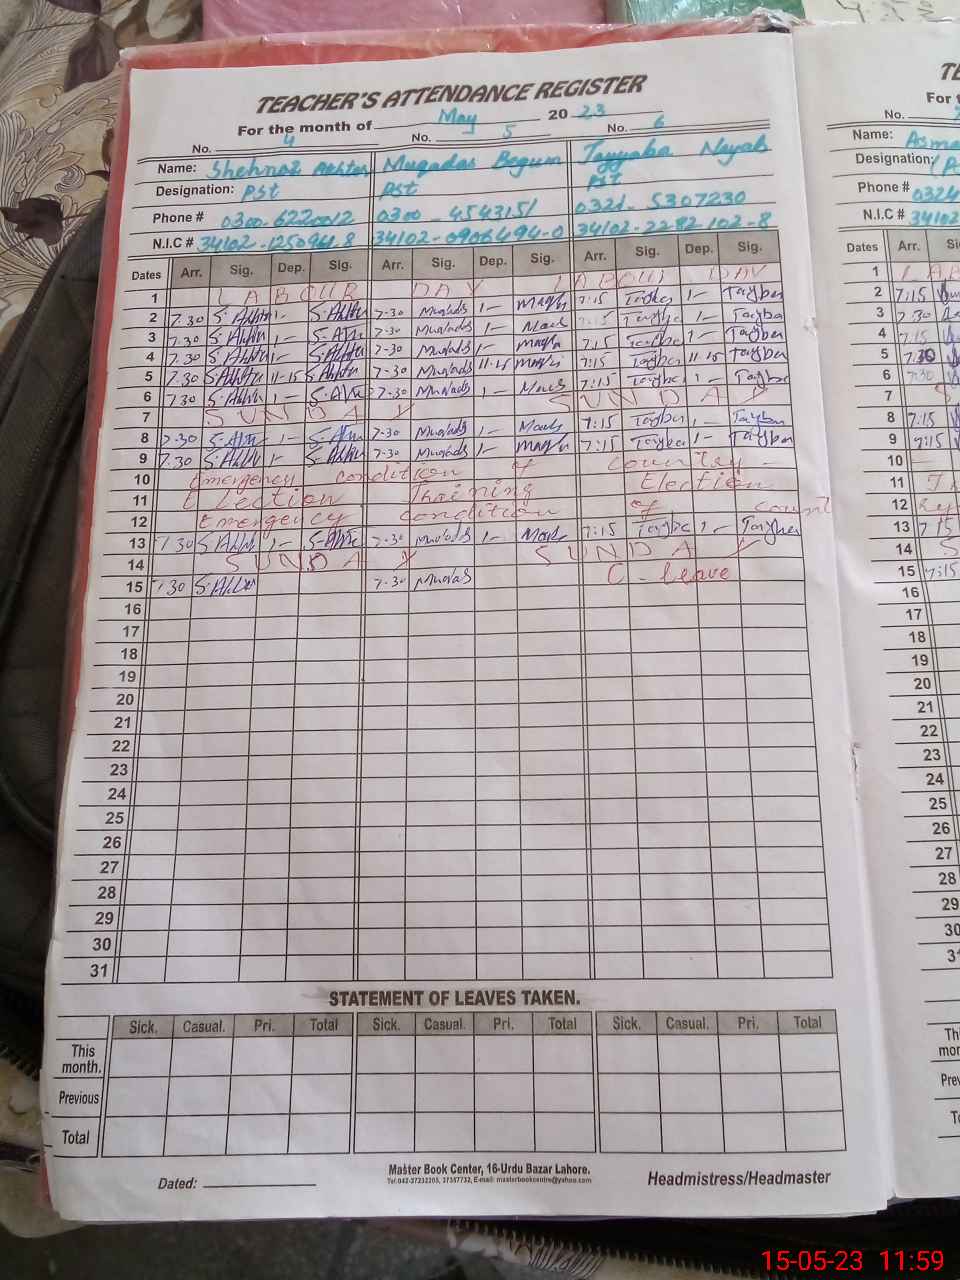 TEACHER'S ATTENDANCE REGISTER
For the month of May 2023
No. 4 No. 5 No. 6
Name: Shehnaz Akhtar Muqadas Begum Tayyaba Nayab
Designation: PST PST PST
Phone # 0300-6220012 0300-4543151 0321-5307230
N.I.C # 34102-1250941-8 34102-0906494-0 34102-2282102-8
Dates Arr. Sig. Dep. Sig. Arr. Sig. Dep. Sig. Arr. Sig. Dep. Sig.
1 LABOUR DAY LABOUR DAY
2 7.30 S.Akhtar 1- S.Akhtar 7-30 Muqadas 1- 7:15 Tayyba 1- Tayyba
3 7.30 S.Akhtar 1- 7-30 Muqadas 1- 7:15 1- Tayyba
4 7.30 S.Akhtar 1- S.Akhtar 7-30 Muqadas 1- 7:15 1- Tayyba
5 7-30 S.Akhtar 11-15 S.Akhtar 7-30 Muqadas 11-15 7:15 11-15 Tayyba
6 7.30 S.Akhtar 1- 7-30 Muqadas 1- 7:15 1-
7 SUNDAY SUNDAY
8 7-30 1- 7-30 Muqadas 1- 7:15 Tayyba 1- Tayyba
9 7.30 S.Akhtar 1- S.Akhtar 7-30 Muqadas 1- 7:15 Tayyba 1- Tayyba
10 Emergency condition of country -
11 Election Training Election
12 Emergency condition of count
13 7.30 S.Akhtar 1- 7-30 Muqadas 1- 7:15 1- Tayyba
14 SUNDAY SUNDAY
15 7.30 S.Akhtar 7-30 Muqadas C-leave
16
17
18
19
20
21
22
23
24
25
26
27
28
29
30
31
STATEMENT OF LEAVES TAKEN.
Sick. Casual. Pri. Total Sick. Casual. Pri. Total Sick. Casual. Pri. Total
This month.
Previous
Total
Dated:
Master Book Center, 16-Urdu Bazar Lahore.
Headmistress/Headmaster
For
No.
Name: Asma
Designation:
Phone # 0324
N.I.C # 34102
Dates Arr.
1 LAB
2 7:15
3 7.30
4 7.15
5 7.30
6 7:30
7 S
8 7:15
9 9:15
10
11
12
13 7 15
14 S
15 7:15
16
17
18
19
20
21
22
23
24
25
26
27
28
29
30
15-05-23 11:59